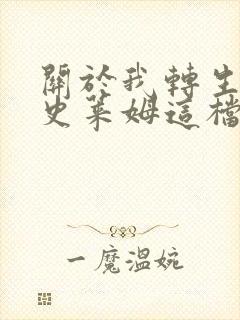 關於我轉生
史萊姆這檔
一魔溫婉